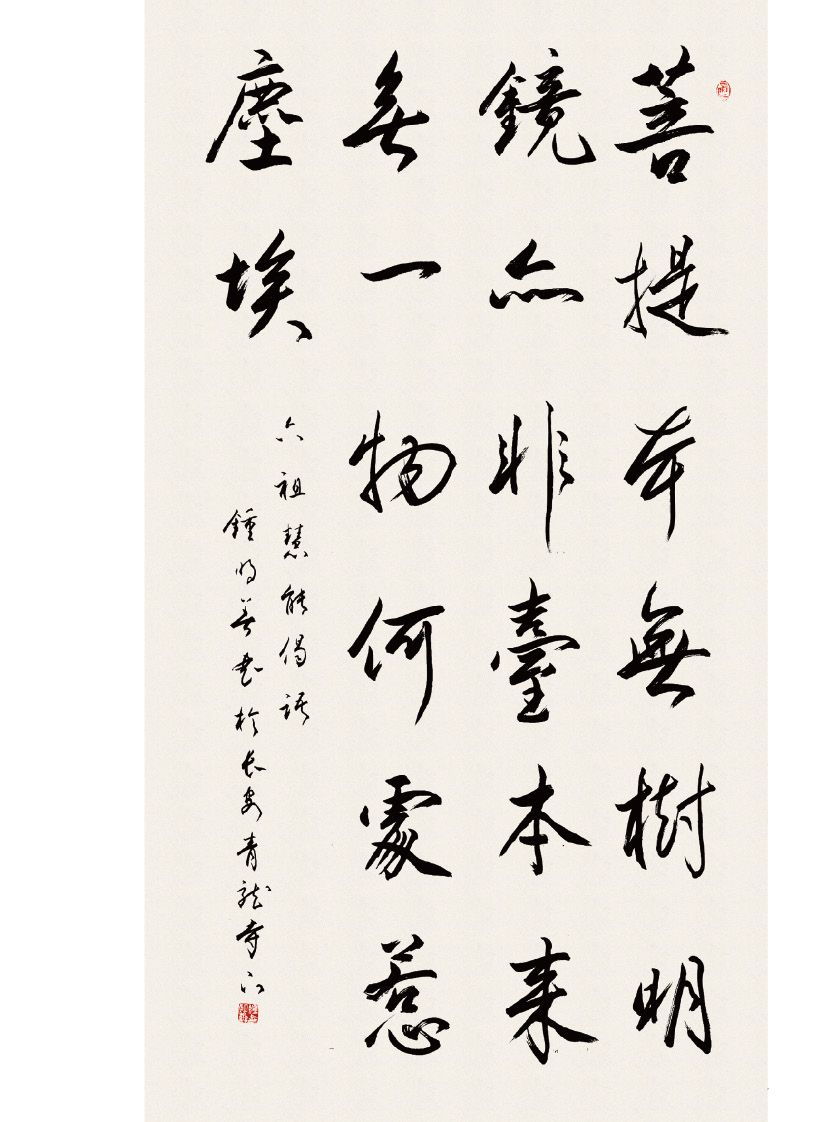 菩提本無樹明
鏡亦非臺本來
無一物何處惹
塵埃
六祖慧能偈語
鍾明善書於長安青龍寺下